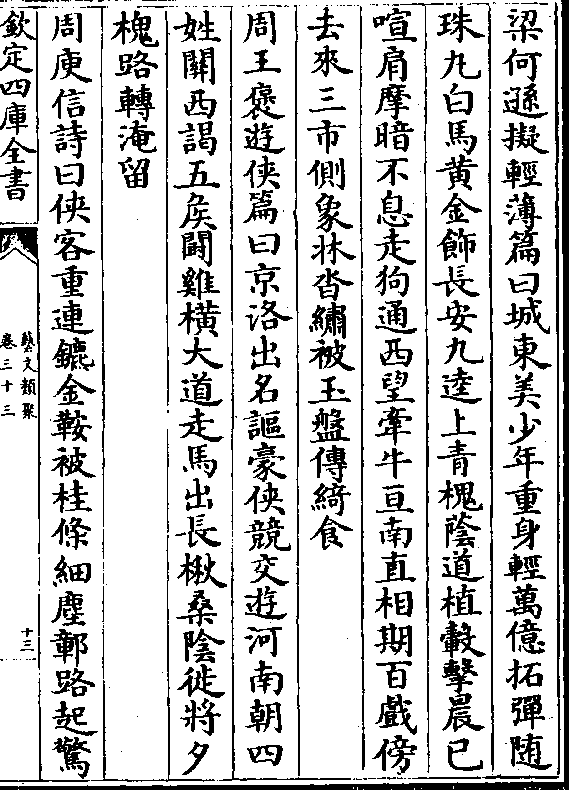 梁何遜擬輕薄篇曰城東美少年重身輕萬億拓彈随
珠丸白馬黃金飾長安九逵上青槐蔭道植轂擊晨已
喧肩摩暗不息走狗通西望牽牛亘南直相期百戲傍
去來三市側象牀沓繡被玉盤傳綺食
周王褒遊俠篇曰京洛出名謳豪俠競交遊河南朝四
姓關西謁五侯鬬雞橫大道走馬出長楸桑陰徙將夕
槐路轉淹留
周庾信詩曰俠客重連鑣金鞍被桂條細塵鄣路起驚
欽定四庫全書
藝文類聚
卷三十三
十三